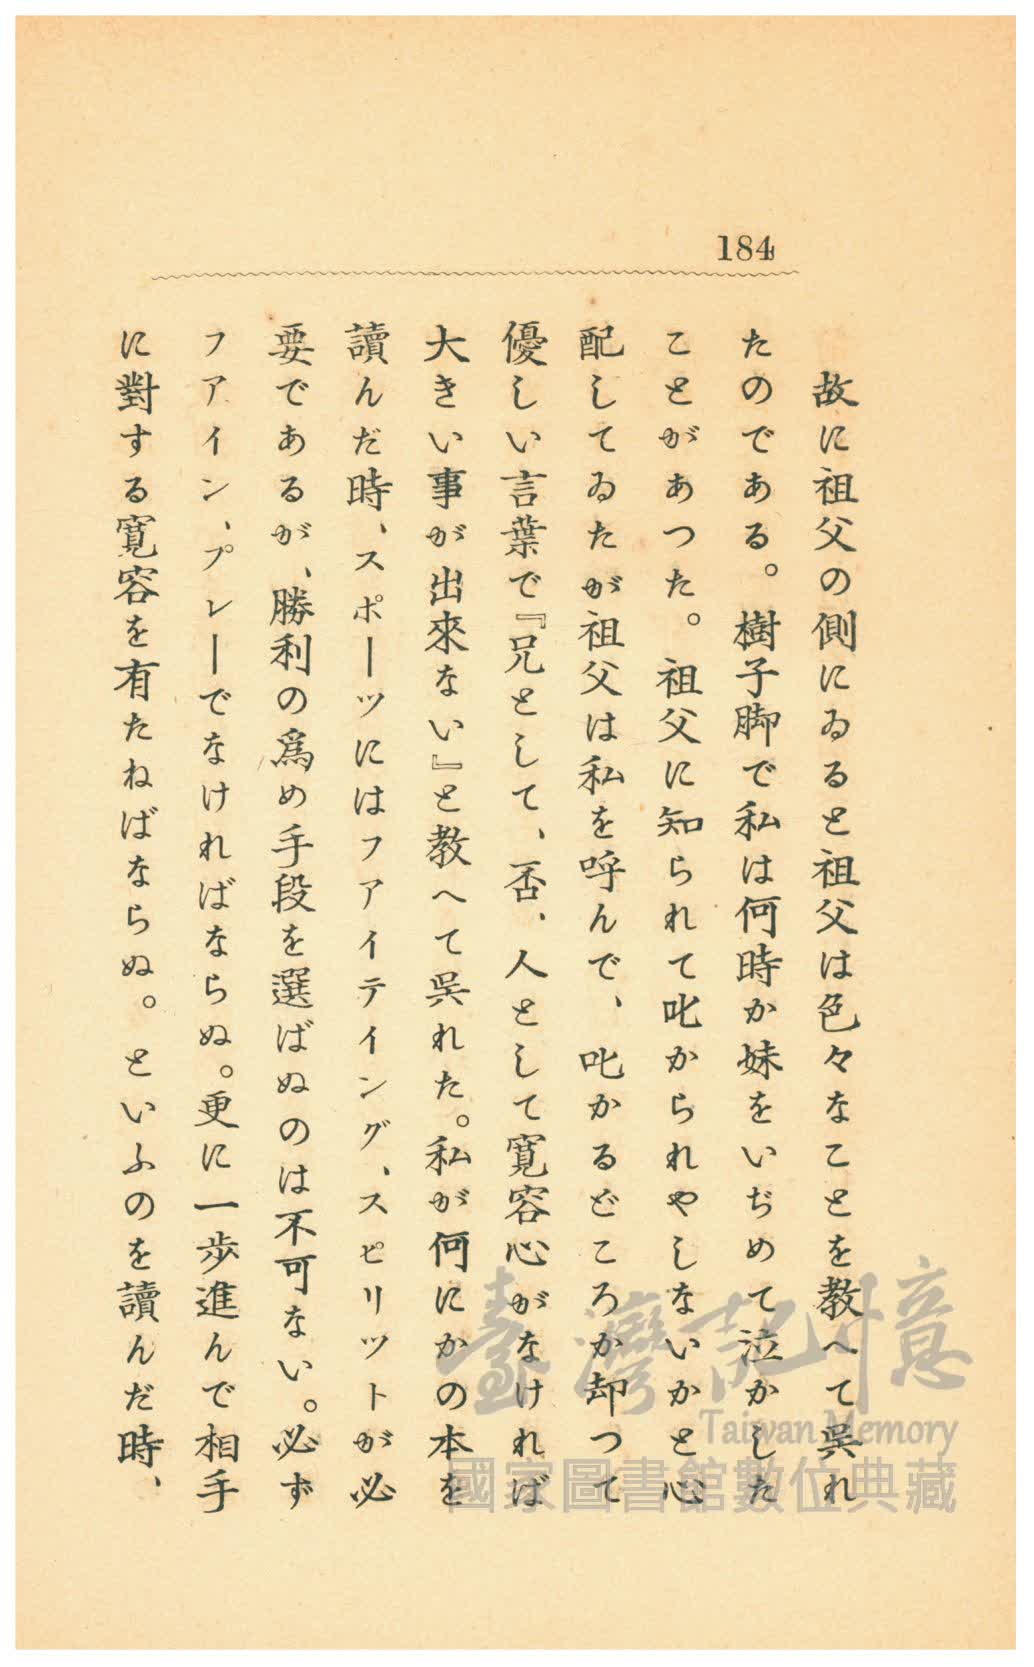 184
故に祖父の側にゐると祖父は色々なことを教へて呉れ
たのである。樹子脚で私は何時か妹をいぢめて泣かした
ことがあつた。祖父に知られて叱かられやしないかと心
配してゐたが祖父は私を呼んで、叱かるどころか却つて
優しい言葉で『兄として、否、人として寛容心がなければ
大きい事が出來ない』と教へて呉れた。私が何にかの本を
讀んだ時、スポーツにはフアイテイング、スピリツトが必
要であるが、勝利の爲め手段を選ばぬのは不可ない。必ず
フアイン、プレーでなければならぬ。更に一歩進んで相手
に對する寛容を有たねばならぬ。といふのを讀んだ時、
臺灣記憶
Taiwan Memory
國家圖書館數位典藏